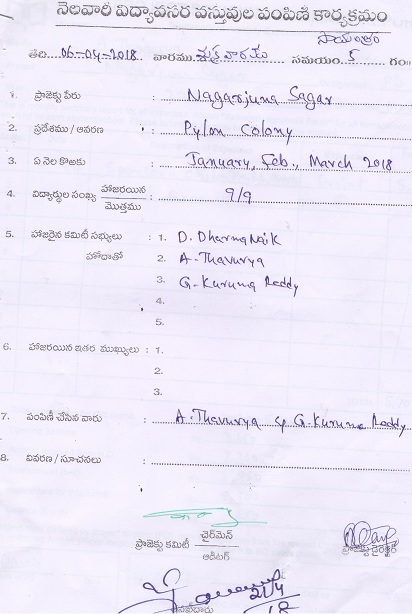 నెలవారీ విద్యావసర వస్తువుల పంపిణీ కార్యక్రమం
సాయంత్రం
తేది....06-04-2018 వారము శుక్రవారము సమయం 5 గం॥
1. ప్రాజెక్టు పేరు : Nagarjuna Sagar
2. ప్రదేశము / ఆవరణ : Pylon Colony
3. ఏ నెల కొఱకు : January, Feb., March 2018
4. విద్యార్థుల సంఖ్య హాజరయిన / మొత్తము : 9/9
5. హాజరైన కమిటీ సభ్యులు : 1. D. Dharma Naik
హోదాతో 2. A. Thavurya
3. G. Kuruma Reddy
4.
5.
6. హాజరయిన ఇతర ముఖ్యులు : 1.
2.
3.
7. పంపిణీ చేసిన వారు : A. Thavurya & G. Kuruma Reddy
8. వివరణ / సూచనలు :
ప్రాజెక్టు కమిటీ ఛైర్మెన్ / ఆడిటర్
ప్రాజెక్టు డైరెక్టర్